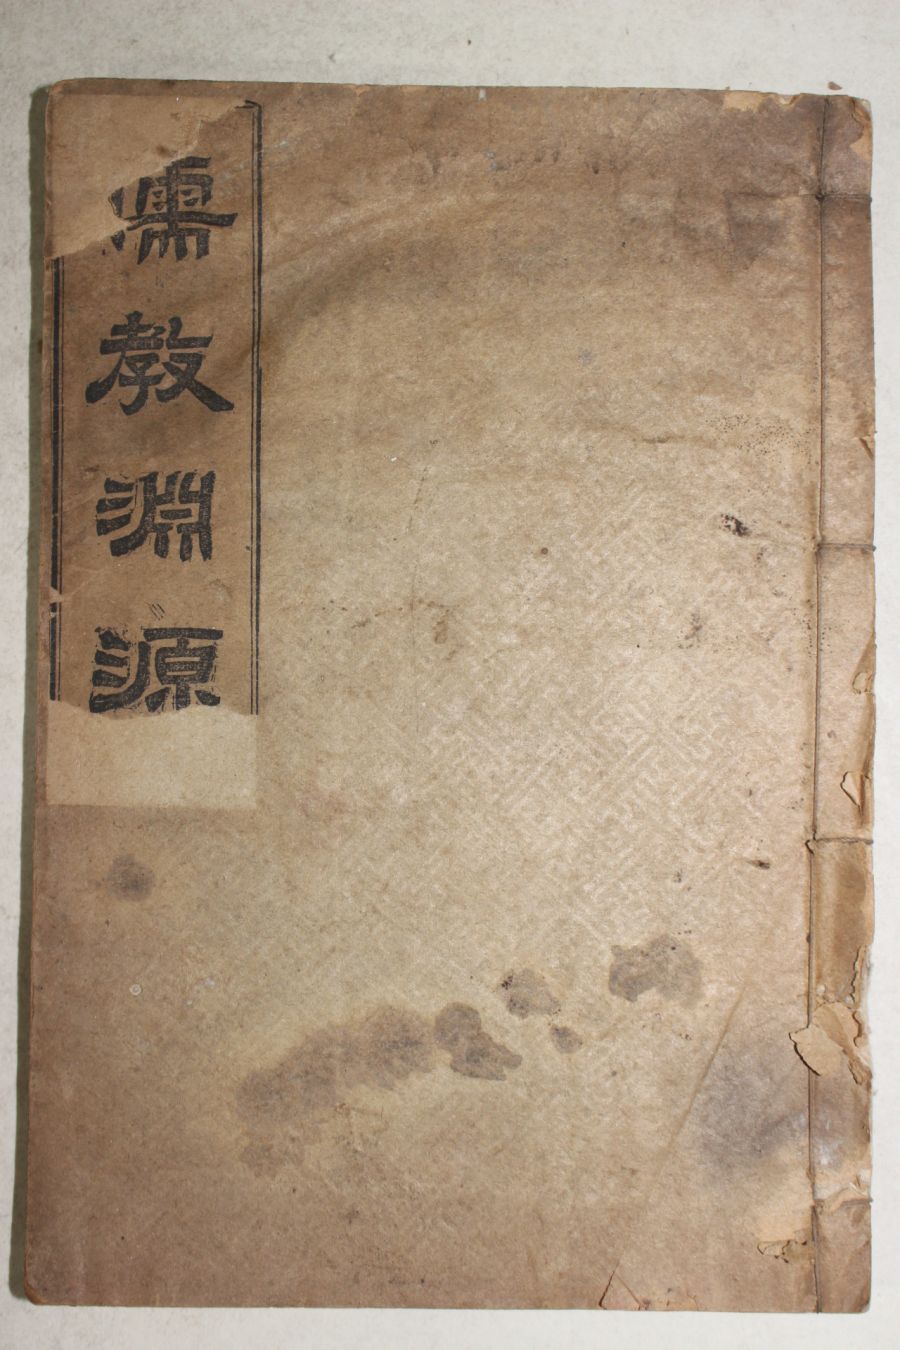 儒教淵源